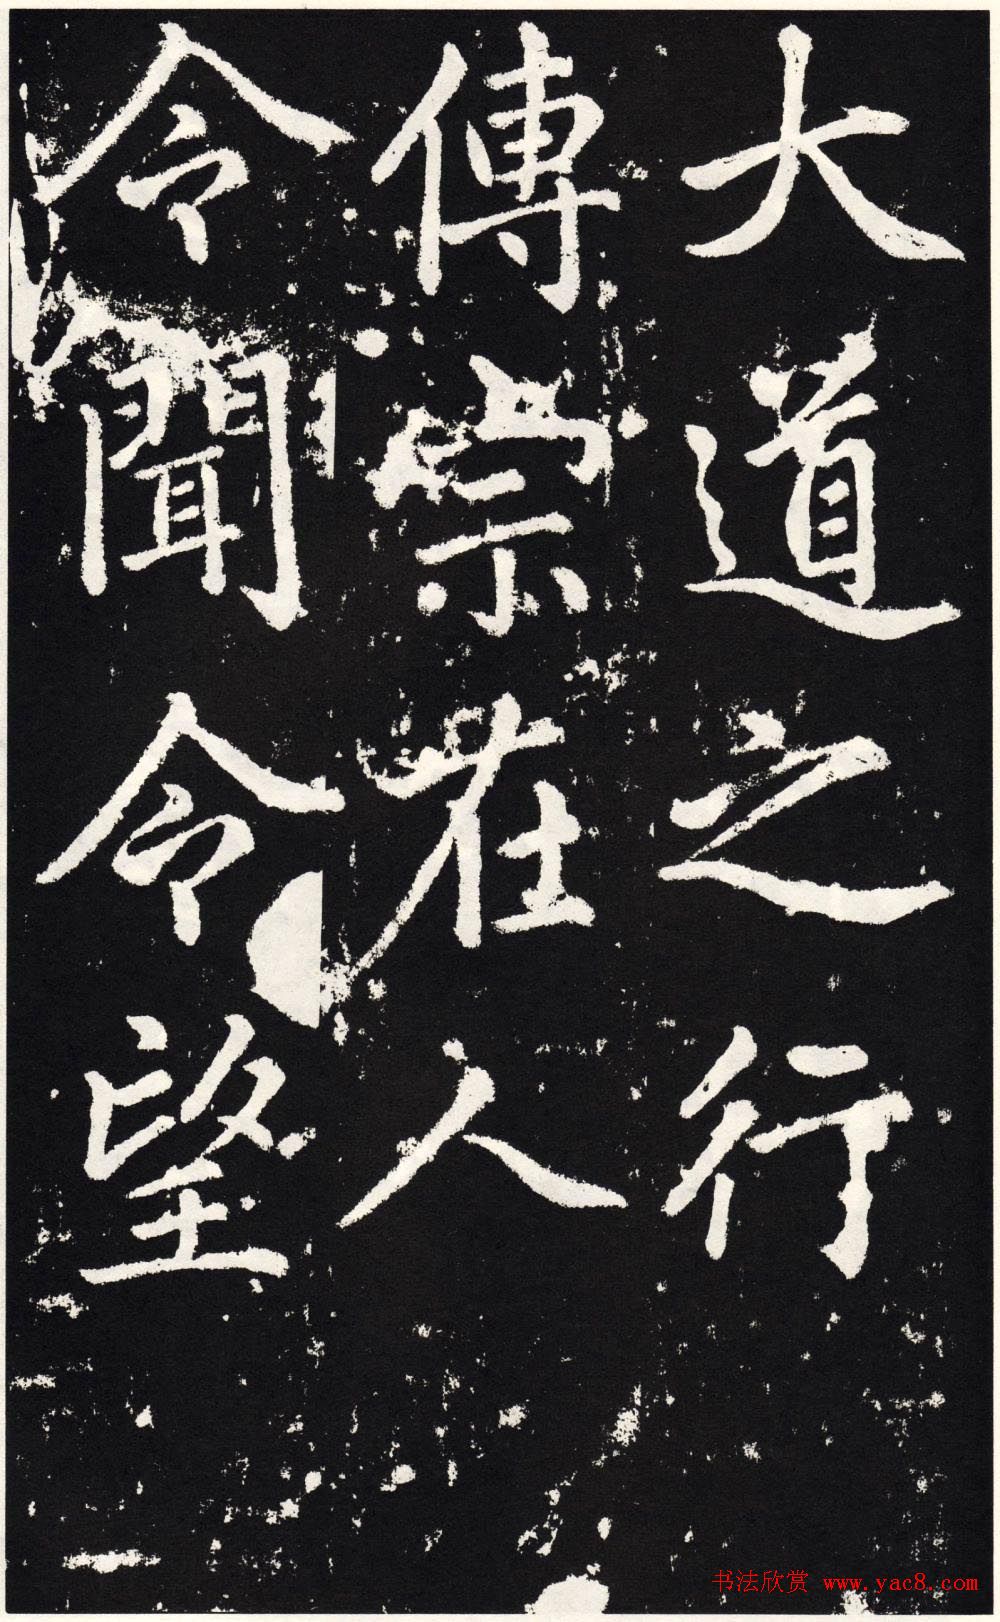 大道之行
傳宗在人
令聞令望
书法欣赏 www.yac8.com